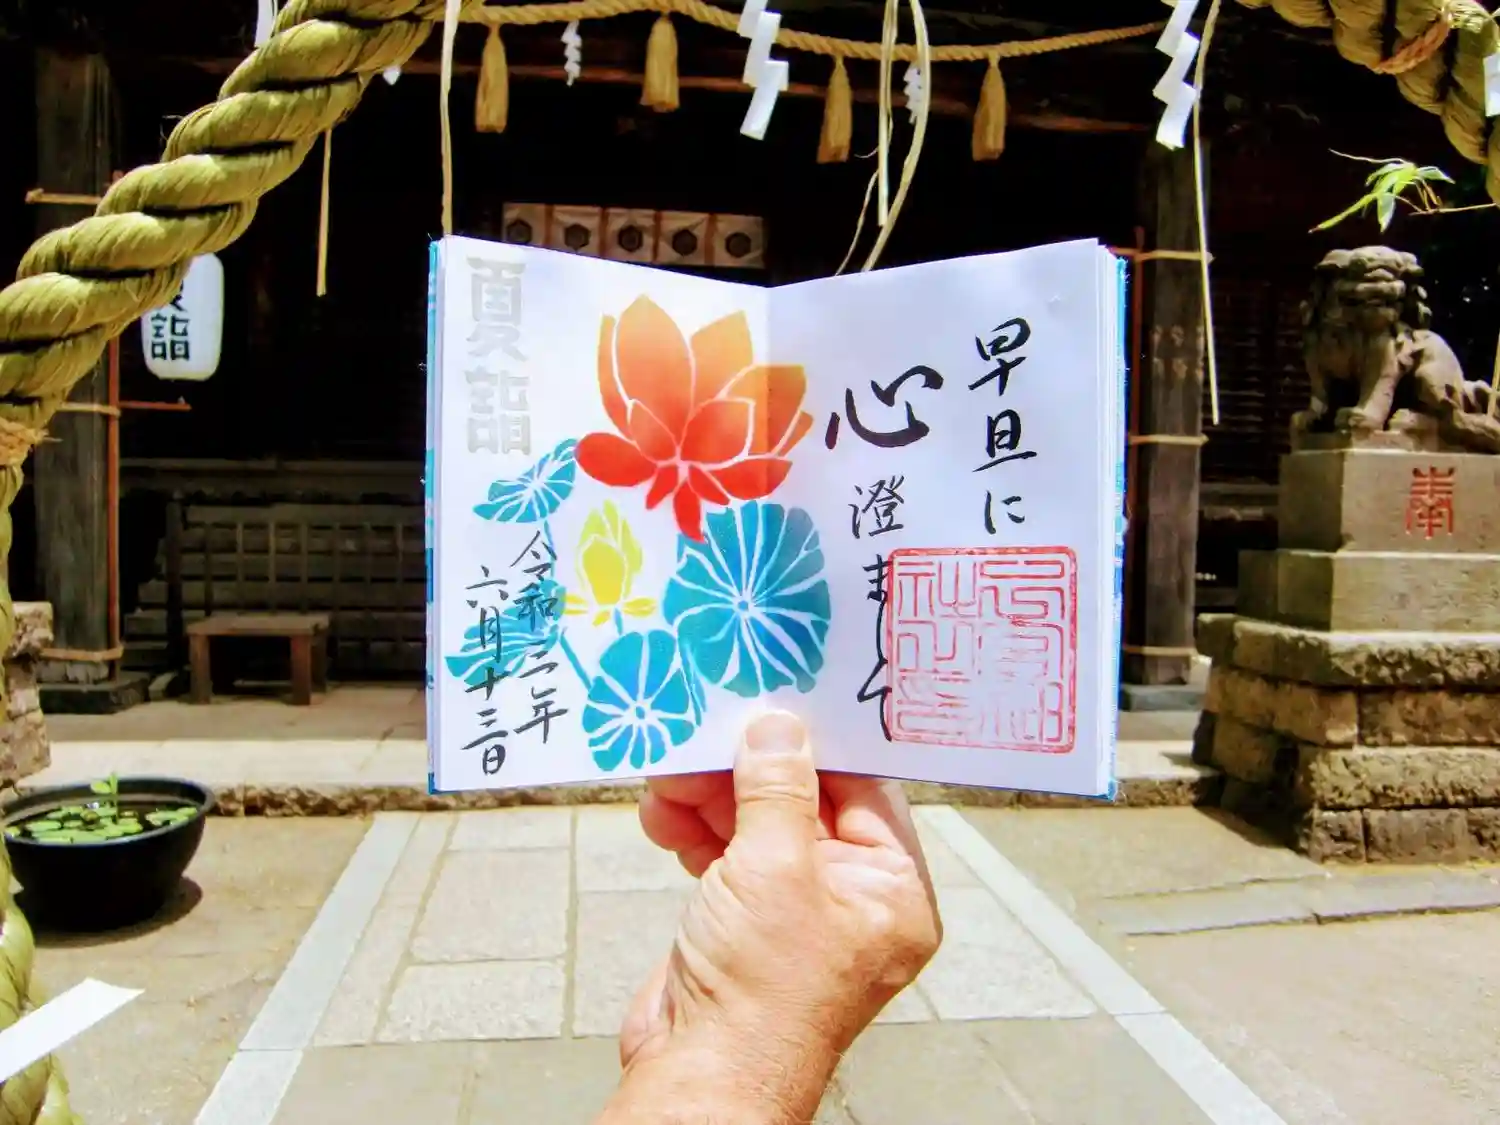 早旦に
心澄まして
夏詣
令和二年
六月十三日
夏詣
奉